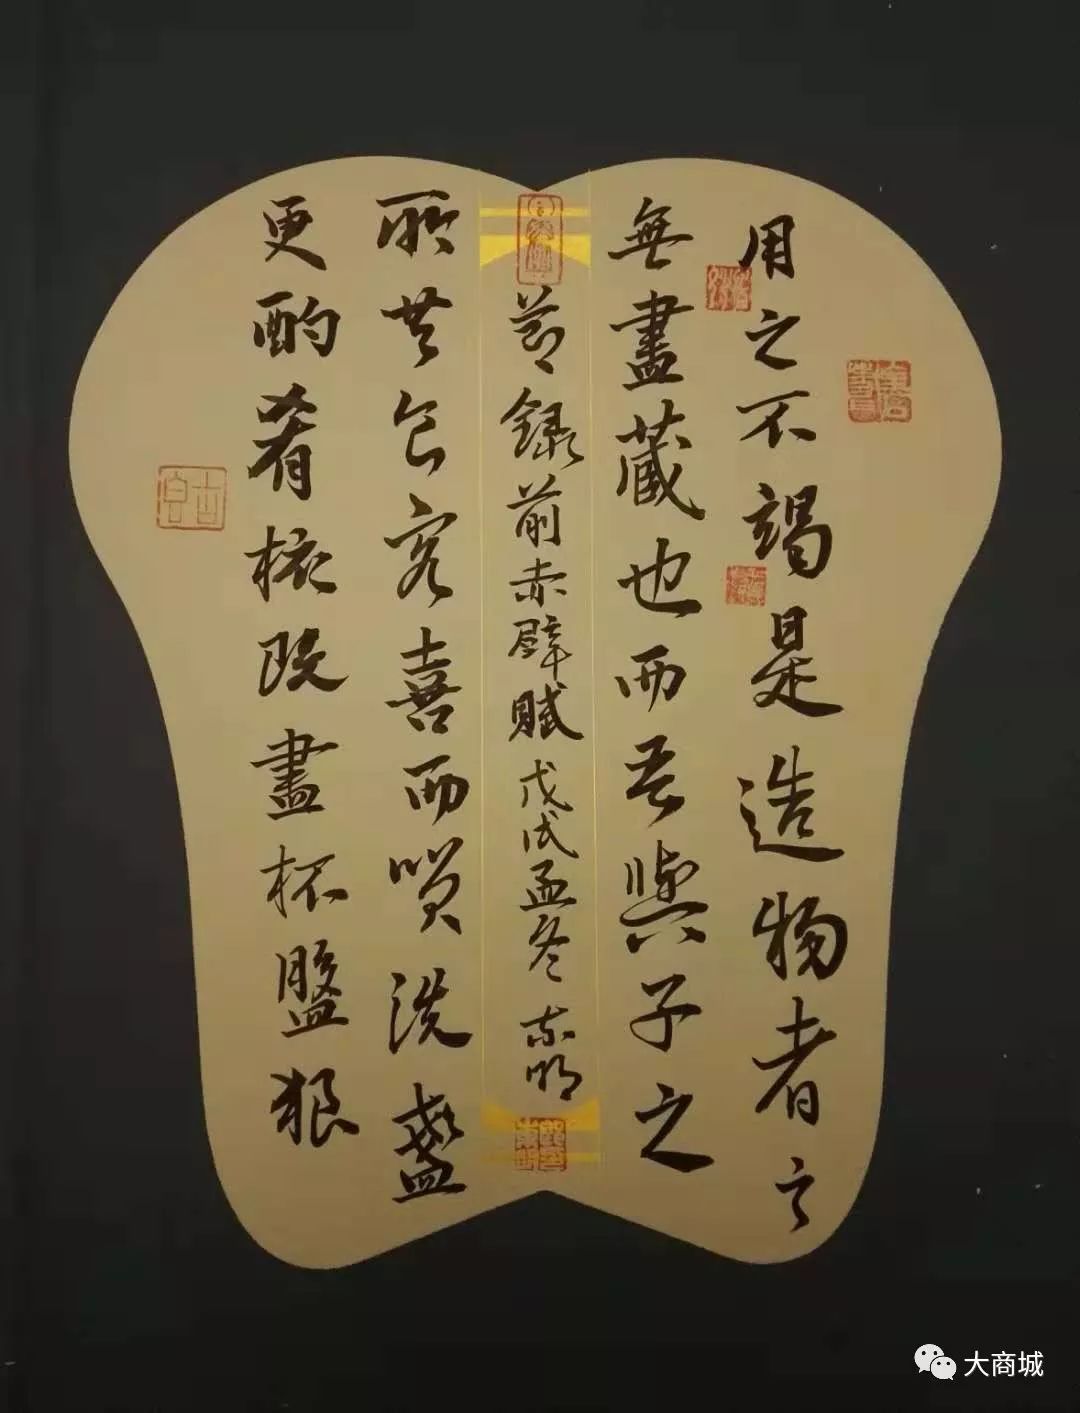 用之不竭是造物者之
無盡藏也而吾與子之
節錄前赤壁賦戊戌孟冬
所共食客喜而笑洗盞
更酌肴核既盡杯盤狼
大商城